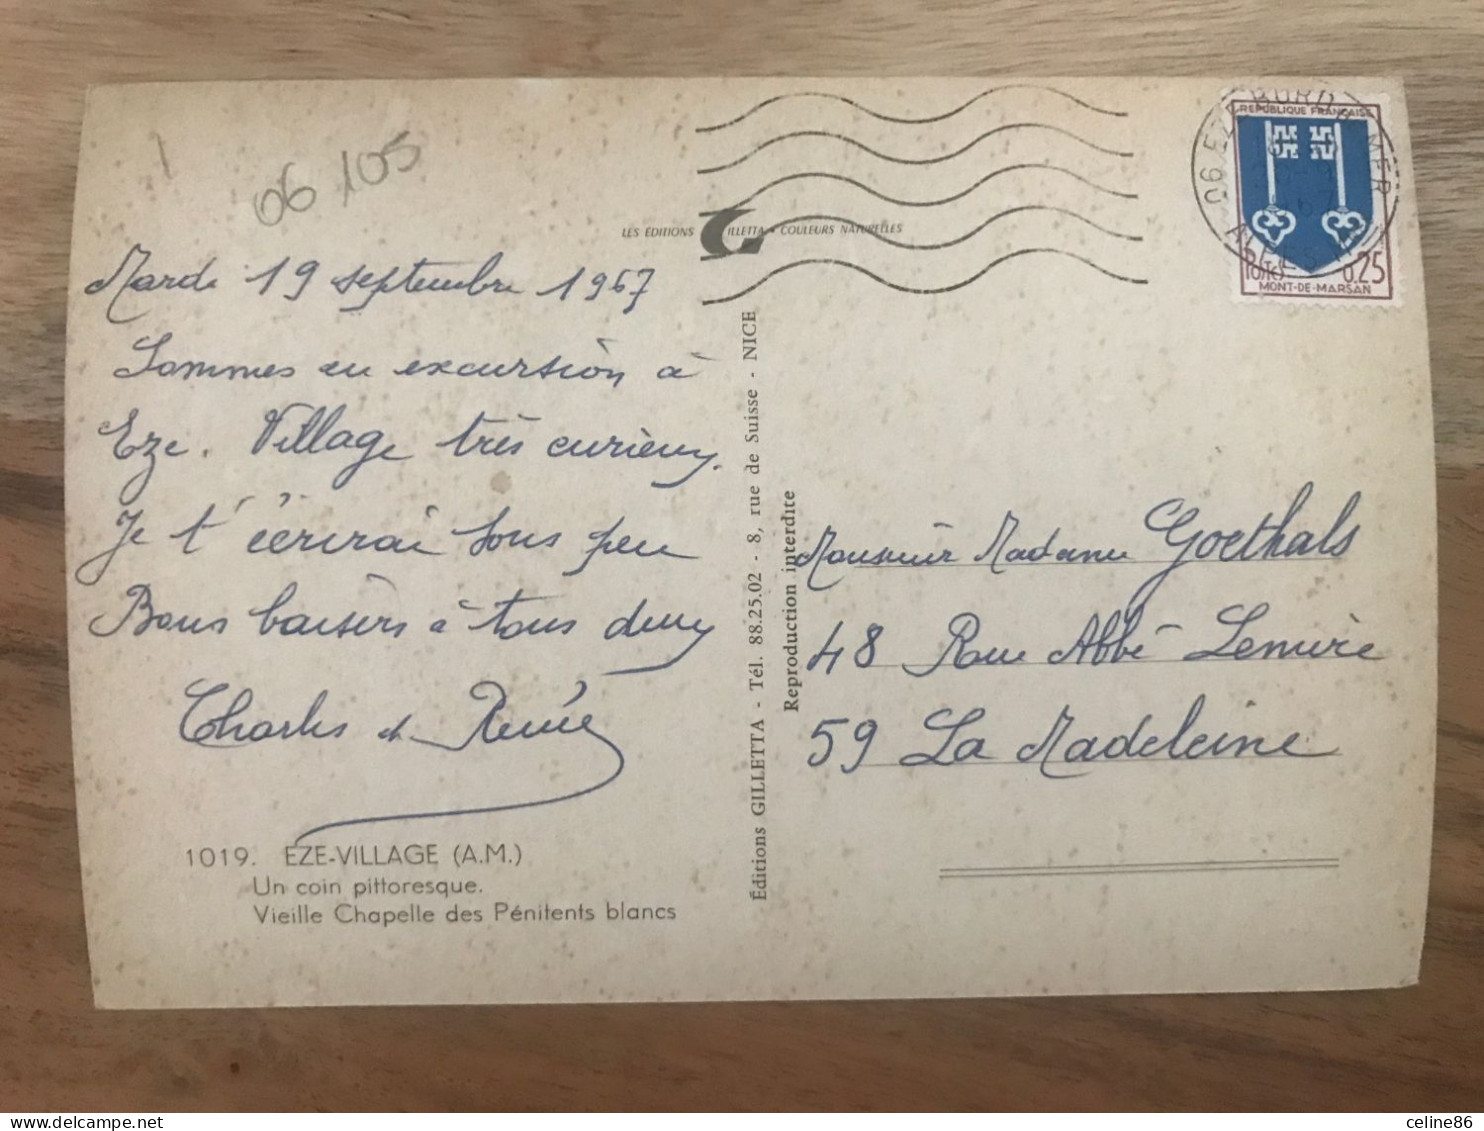 06 105
LES ÉDITIONS GILLETTA • COULEURS NATURELLES
Mardi 19 septembre 1967
Sommes en excursion à
Eze. Village très curieux.
Je t'écrirai sous peu
Bons baisers à tous deux
Charles et Renée
1019. EZE-VILLAGE (A.M.)
Un coin pittoresque.
Vieille Chapelle des Pénitents blancs
Éditions GILLETTA - Tél. 88.25.02 - 8, rue de Suisse - NICE
Reproduction interdite
06 EZE BORD MER
REPUBLIQUE FRANÇAISE
Postes 0,25
MONT-DE-MARSAN
Monsieur Madame Goethals
48 Rue Abbé Lemire
59 La Madeleine
celine86